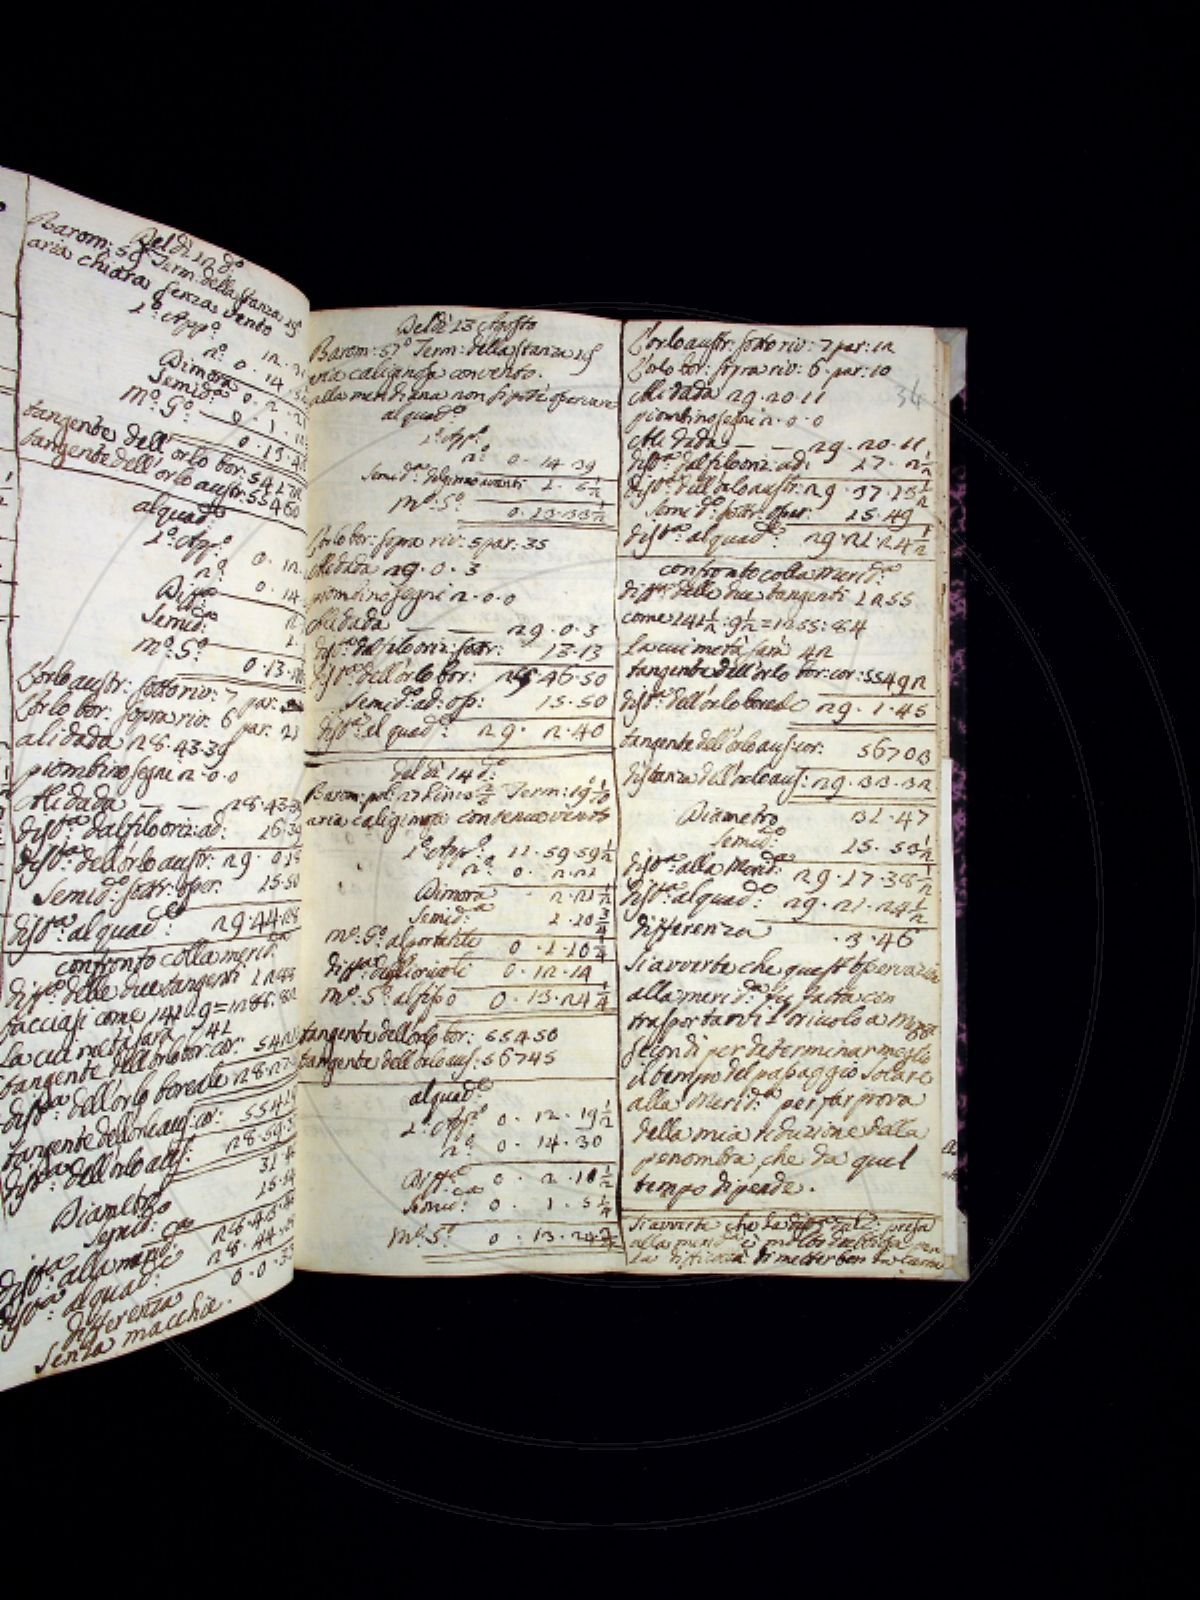 Del dì 12 d.º
Barom: 59 Term: della stanza 19
aria chiara senza vento
1.º App.º
n.º 0. 14.
Dimora 0. 2. 21
Semid.ª 0. 1. 11
m.º S.º 0. 13.
tangente dell'orlo bor: 54172
tangente dell'orlo austr: 55460
al quad.º
1.º App.º 0. 12.
n.º 0. 14.
Diff.ª
Semid:ª 1.
m.º S.º 0. 13.
L'orlo austr: sotto riv: 7 par:
L'orlo bor: sopra riv: 6 par: 21
alidada 28. 43. 39
piombino segni 2. 0. 0
Alidada — — 28. 43. 39
dist.ª dal filo oriz: ad: 16. 39
dist.ª dell'orlo austr: 29. 0. 18
Semid.º sottr: oper: 15. 50
dist.ª al quad.º 28. 44. 28
confronto colla merid.ª
diff.ª delle due tangenti 1288
facciasi come
la cui metà sarà 41
tangente dell'orlo bor: cor:
dist.ª dell'orlo boreale 28. 27.
tangente dell'orlo aus: cor:
dist.ª dell'orlo aus: 28. 59.
Diametro 31.
Semid:º 15.
dist.ª alla merid:
dist.ª al quad.º 28. 44.
differenza 0. 0. 33
senza macchie.
Del dì 13 Agosto
Barom: 57º Term: della stanza 19
aria caliginosa con vento.
alla meridiana non si potè operare
al quad.º
1.º App.º
n.º 0. 14. 39
Semid.ª del primo avanti 1. 5½
m.º S.º 0. 13. 33½
L'orlo bor: sopra riv: 5 par: 35
Alidada 29. 0. 3
piombino segni 2. 0. 0
Alidada — — 29. 0. 3
dist.ª dal filo oriz: sottr: 13. 13
dist.ª dell'orlo bor: 28. 46. 50
Semid.º ad: op: 15. 50
dist.ª al quad.º: 29. 2. 40
del dì 14 d.º
Barom: pol: 27 linie Term: 19
aria caliginosa con tenuo vento
1.º App.º 11. 59. 59½
n.º 0. 2. 21
Dimora 2. 21½
Semid:ª 1. 10¾
m.º S.º al portatile 0. 1. 10¼
Diff.ª degli orivoli 0. 12. 14
m.º S.º al fisso 0. 13. 24¼
tangente dell'orlo bor: 55450
tangente dell'orlo aus: 56745
al quad.º
1.º App.º 0. 12. 19½
n.º 0. 14. 30
Diff.ª 0. 2. 10½
Semid: 0. 1. 5¼
m.º S.º 0. 13. 24¾
34
L'orlo austr: sotto riv: 7 par: 12
L'orlo bor: sopra riv: 6 par: 10
Alidada 29. 20. 11
piombino segni 2. 0. 0
Alidada — — 29. 20. 11
dist.ª dal filo oriz: ad: 17. 2½
dist.ª dell'orlo austr: 29. 37. 13½
Semid.º sottr: oper: 15. 49
dist.ª al quad.º: 29. 21. 24½
confronto colla merid.ª
diff.ª delle due tangenti 1255
come 141½: 9½ = 1255: 84
la cui metà sarà 42
tangente dell'orlo bor: cor: 55492
dist.ª dell'orlo boreale 29. 1. 45
tangente dell'orlo aus: cor: 56703
distanza dell'orlo aus: 29. 33. 32
Diametro 31. 47
Semid.º 15. 53½
dist.ª alla Merid.ª 29. 17. 38½
dist.ª al quad.º 29. 21. 24½
differenza . 3. 46
Si avverte che quest'osservazione
alla merid.ª fu fatta con
trasportarvi l'orivolo a mezzi
secondi per determinar meglio
il tempo del passaggio solare
alla Merid.ª per far prova
della mia riduzione dalla
penombra che da quel
tempo dipende.
Si avverte che la presa
alla merid.ª è molto dubbiosa per
la difficoltà di metter ben la carta